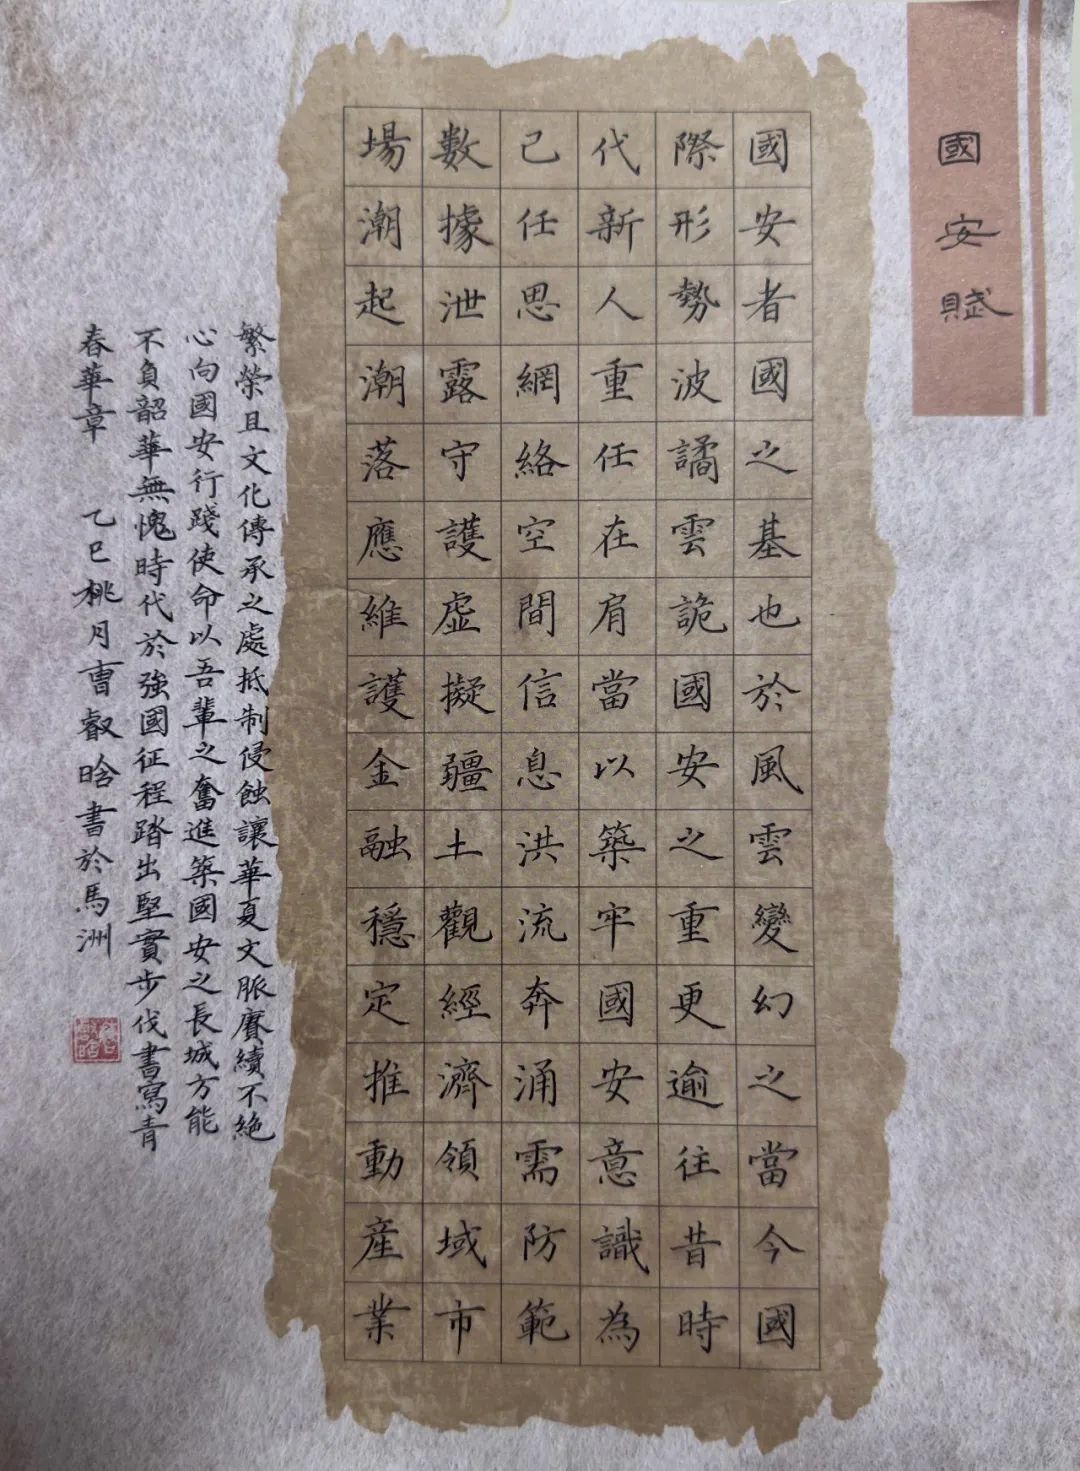 國安賦
國安者國之基也於風雲變幻之當今國
際形勢波譎雲詭國安之重更逾往昔時
代新人重任在肩當以築牢國安意識為
己任思網絡空間信息洪流奔涌需防範
數據泄露守護虛擬疆土觀經濟領域市
場潮起潮落應維護金融穩定推動產業
繁榮且文化傳承之處抵制侵蝕讓華夏文脈賡續不絕
心向國安行踐使命以吾輩之奮進築國安之長城方能
不負韶華無愧時代於強國征程踏出堅實步伐書寫青
春華章 乙巳桃月曹叡晗書於馬洲